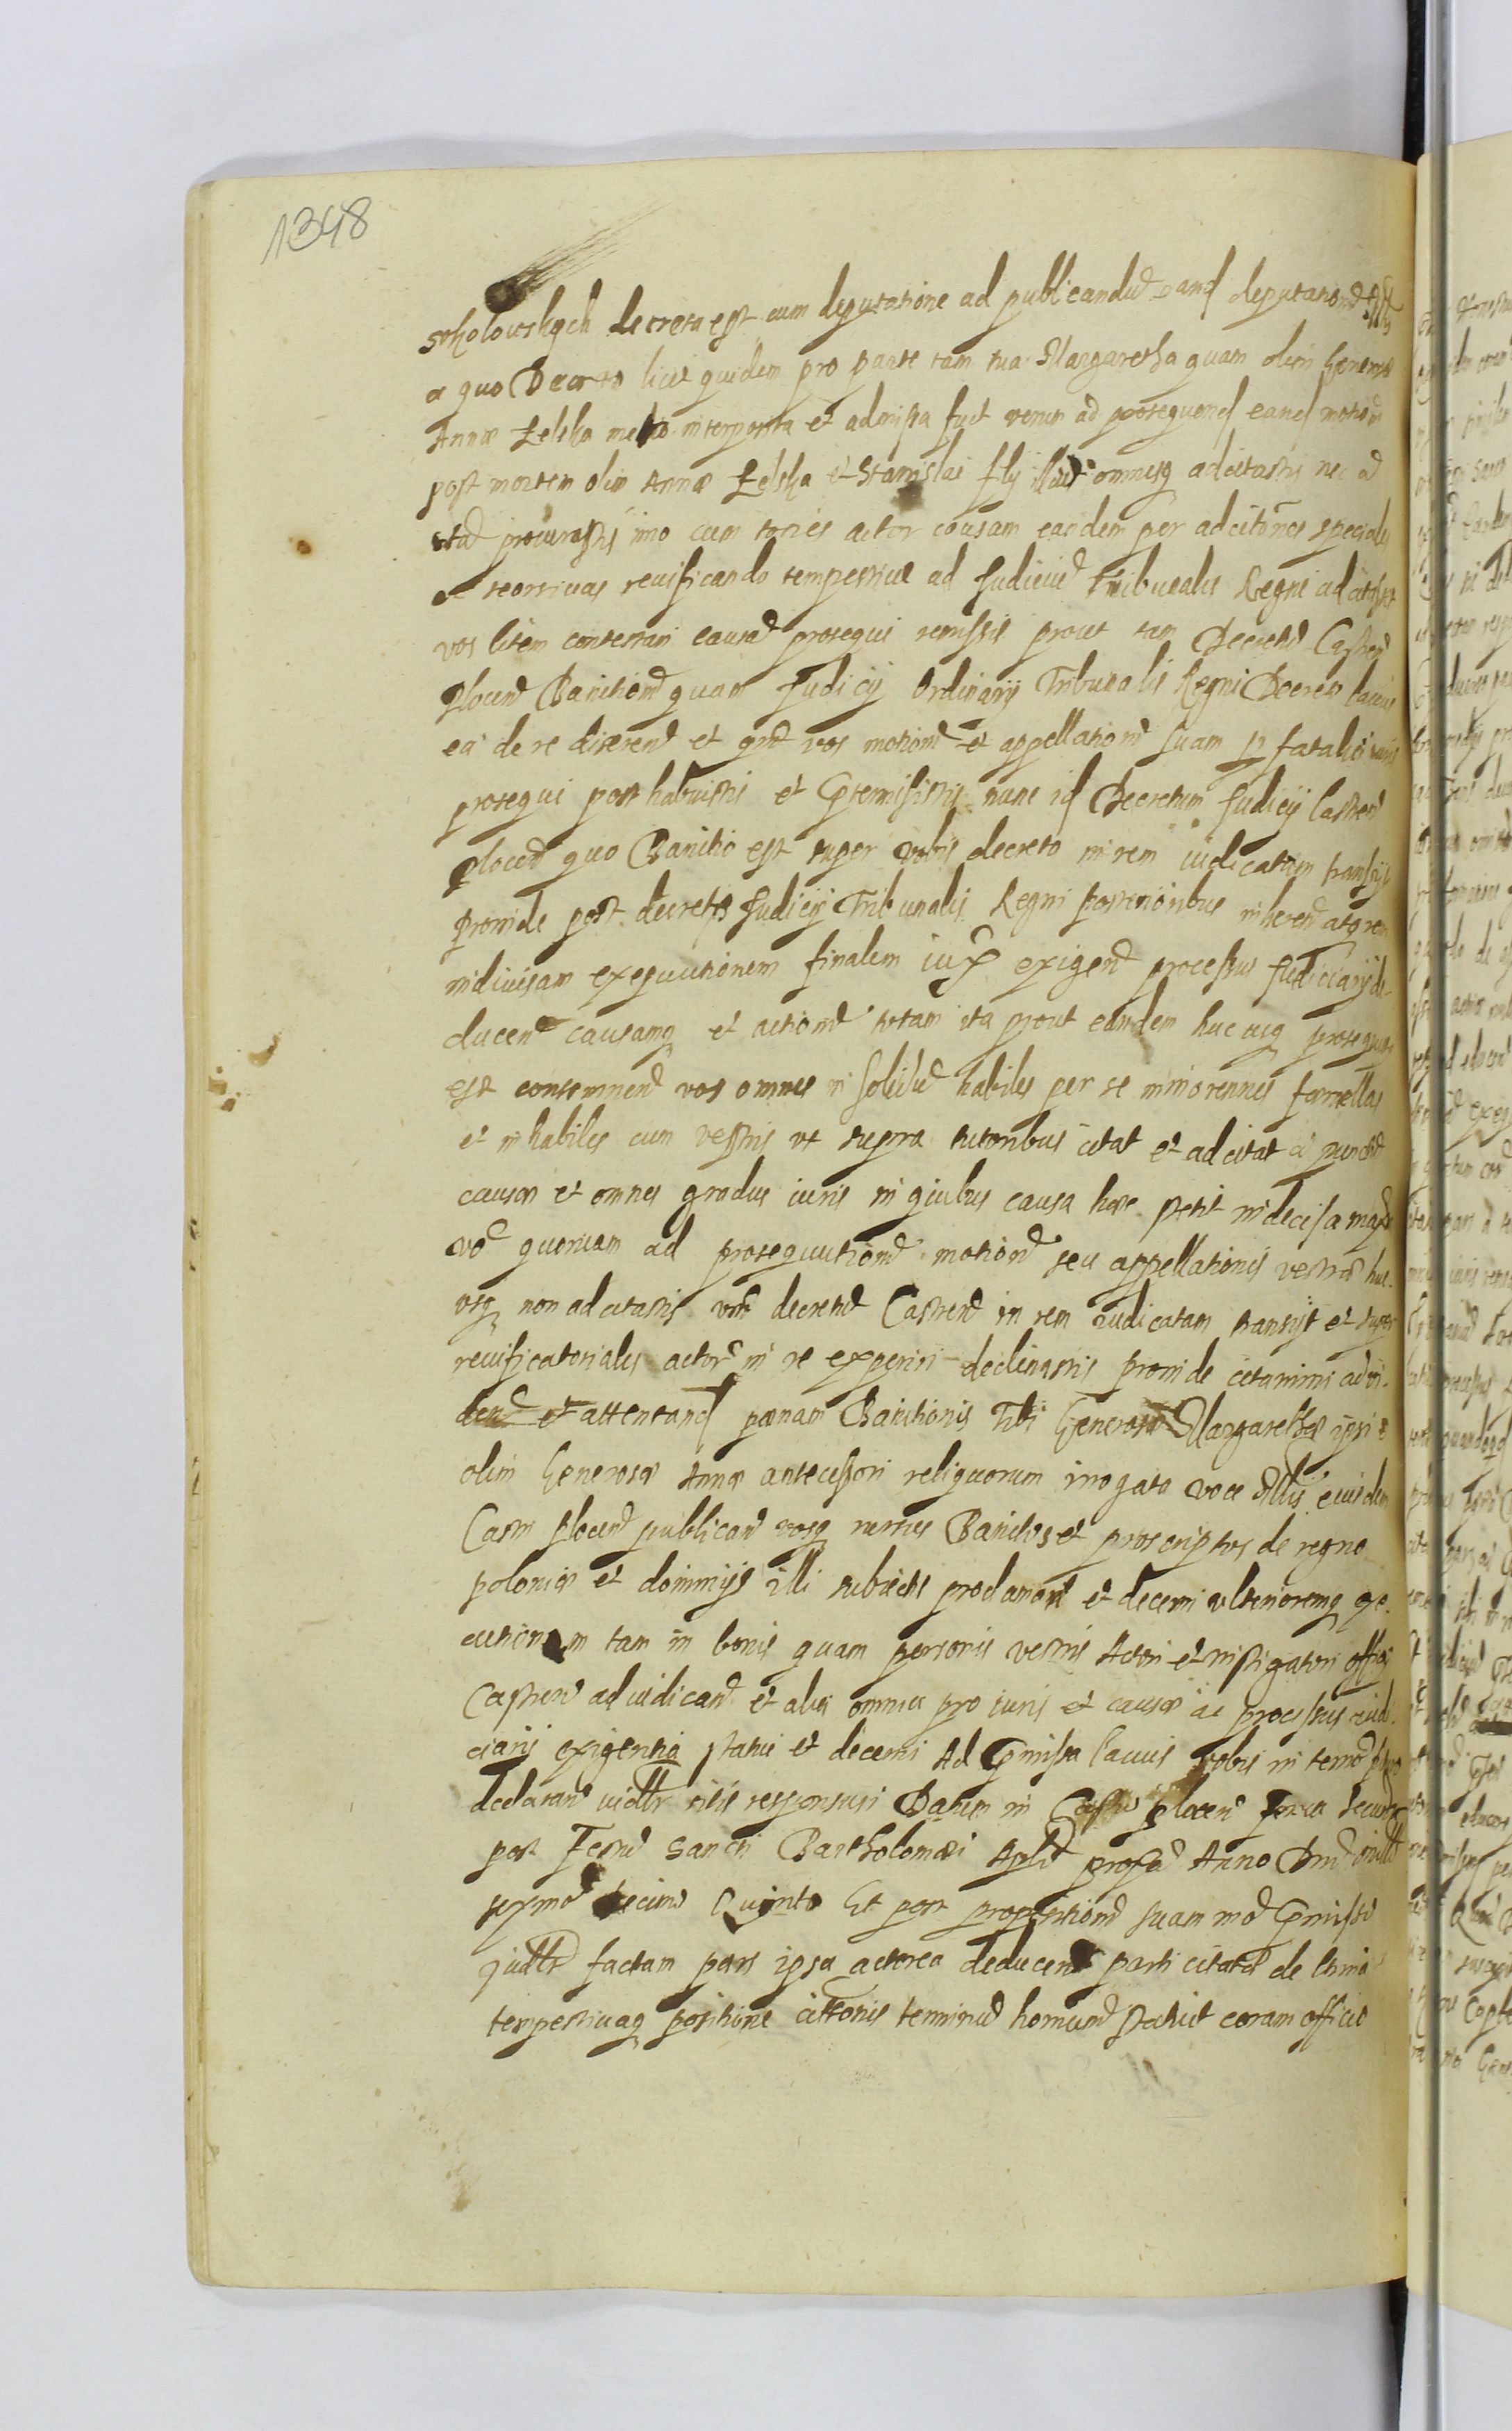 1348
sokolowskych decreta est cum deputatione ad publicandu eand deputationd
a quo Decreto licet quidem pro parte tam tua Margaretha quam olim Generosae
Annae Zelska motio interposita et admissa fuit verum ad prosequend eand motiod
post mortem olim Annae Zelska et Stanislai fily illius omnesq adcitastis nec ad
procurastis imo cum toties actor causam eandem per adcitones speciales
et seorsivas revificando tempestive ad Judiciu Tribunalis Regni adcitasset
vos litem contestari causad prosequi remissis prout tam Decretu Castren
Plocen Banitiond quam Judicij Ordinarij Tribunalis Regni Decreta lacius
ea de re disserend et qnd vos motiond et appellationd suam p fatalia iuris
prosequi posthabuistis et Ꝓtermisistis nunc id Decretum Judicij Castren
Plocen quo Banitio est super vobis decreto in rem iudicatam transijt
proinde post decreta Judicij Tribunalis Regni posterioribus inherend atq rem
indivisam exequutionem finalem iux exigend processus Judiciarij de-
ducend causamq et actiond totam ita prout eandem hucusq prosequutus
est contemnend vos omnes in solidu habiles per se minorennes
et inhabiles cum vestris ut supra tutoribus citat et adcitat a
causae et omnes gradus iuris in quibus causa haec petit indecisa
vo quoniam ad prosequutiond motiond seu appellationis vestrae huc-
usq non adcitastis decretu Castrend in rem iudicatam transijt et super
revificatorialis actore in re experiri declinastis proinde citamini ad vi-
dend et attentand paenam Banitionis Tibi Generosae Margarethae ipsi et
olim Generosae Annae antecessori reliquorum irrogata voce Mlis eiusdem
Castri Plocen publicand vosq veriies Banitos et proscriptos de regno
poloniae et dominijs illi subiectis proclamari et decerni ulterioremq exe-
cutionem tam in bonis quam personis vestris Actori et instigatori officij
Castren adiudicand et alia omnia pro iuris et causae ac processus iudi-
ciarij exigentia statui et decerni Ad Ꝓmissa lacius vobis in termo
declarand iudltr sitis responsuri Datum in Castro Plocen Feria secunda
post Festu Sancti Bartholomaei Apli Anno Dni mill
sexmo decimo Quinto Et post propositiond suam mo Ꝓmisso
judltr factam pars ipsa actorea deducend parti citatae de lima
tempestivaq positione cittonis terminu homund coram officio